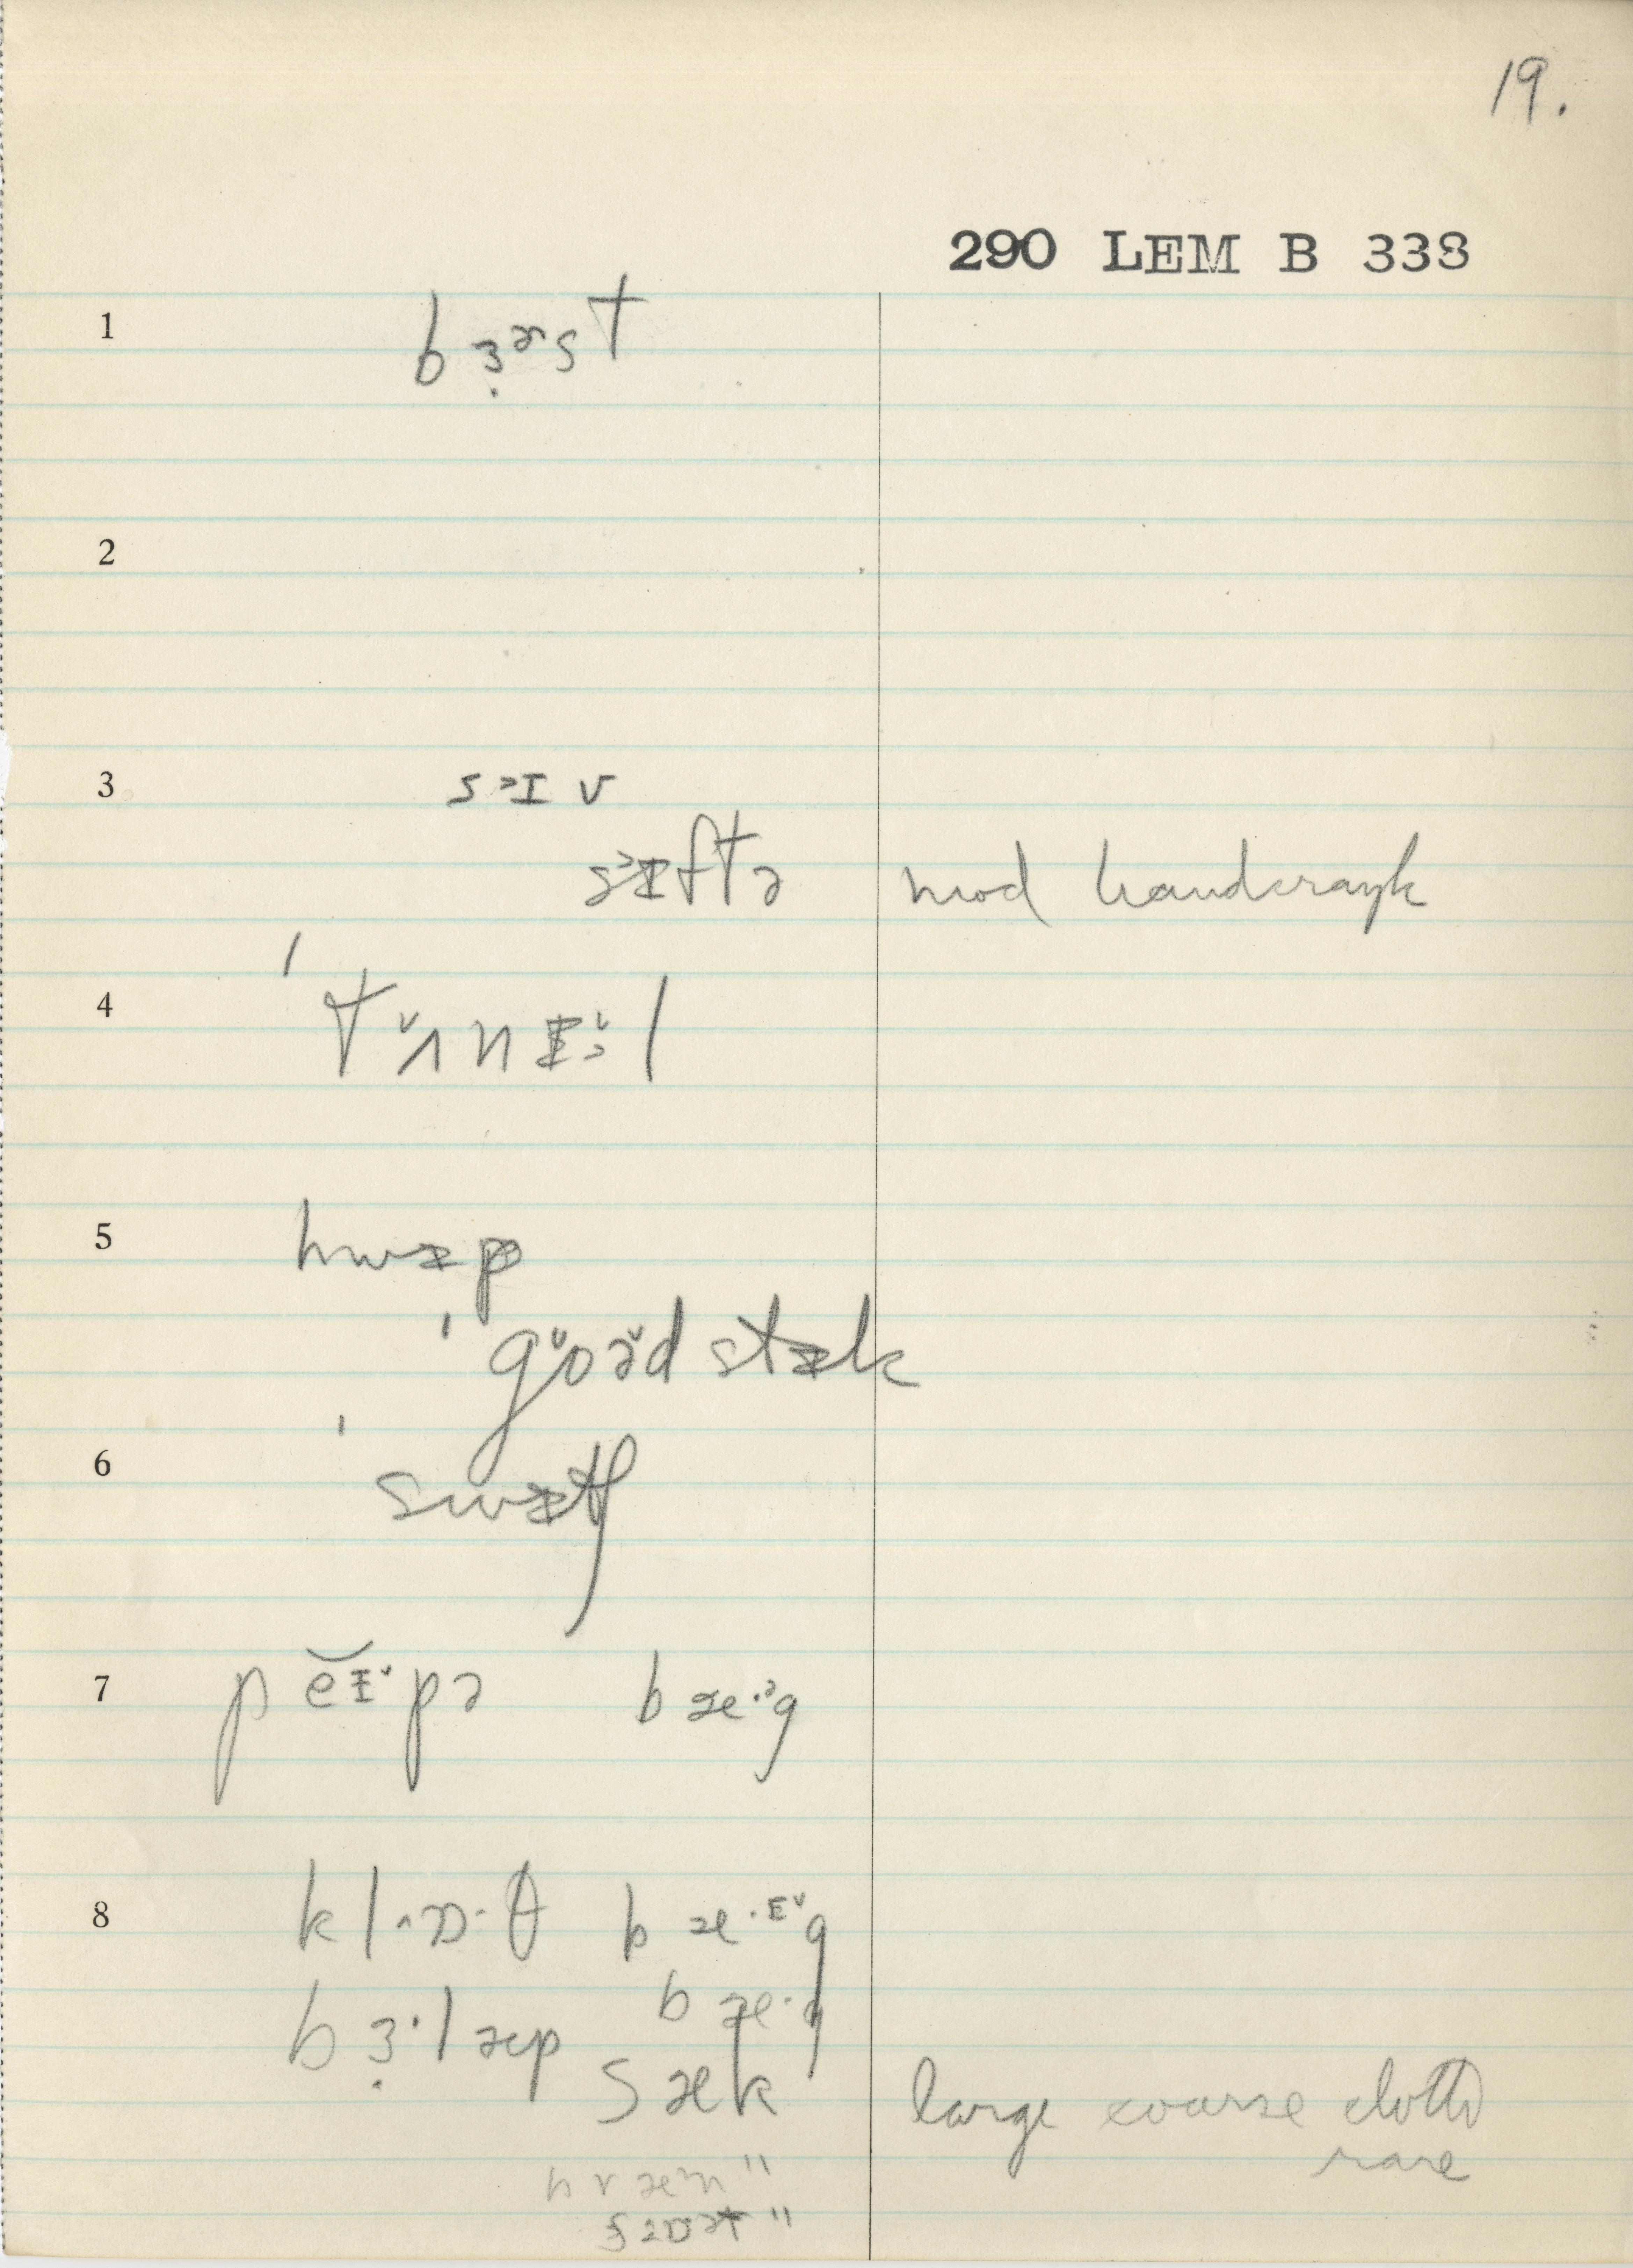 19.
290 LEM B 338
1 b ɜ̣ ɚ s t
2
3 s ᵊɪ v
sᵊɪftə mod handcrank
4 ˈtʌ̆nɪ̆l
5 hwɪp
ˈgŏə̆d stɪk
6 ˈswɪtʃ
7 pĕɪ̆pə bæ·ᵊg
8 kl ɒ· θ bæ·ᴱ̆g
bɜ̣·læp bæ·g
sæk large coarse cloth
rare
"
"